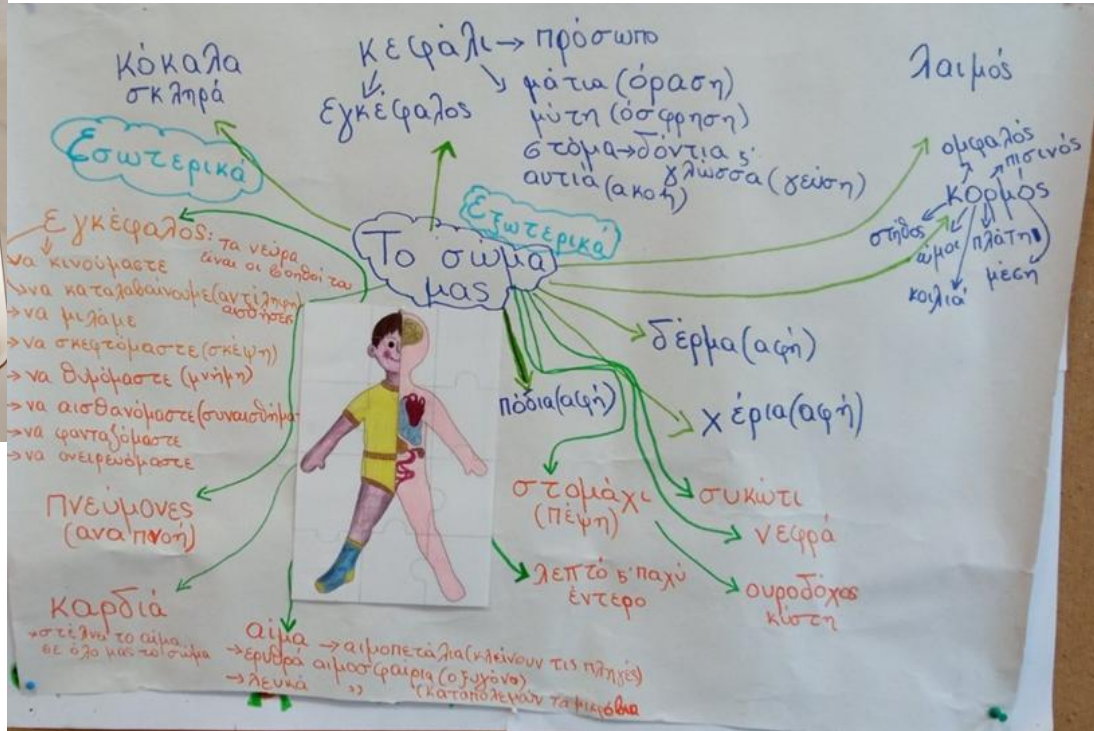 κόκαλα
σκληρά
κεφάλι → πρόσωπο
εγκέφαλος
μάτια (όραση)
μύτη (όσφρηση)
στόμα → δόντια ς'
γλώσσα (γεύση)
αυτιά (ακοή)
λαιμός
ομφαλός
πισινός
κορμός
στήθος
ώμοι
πλάτη
μέση
κοιλιά
Εσωτερικά
Εξωτερικά
Το σώμα
μας
εγκέφαλος: τα νεύρα
είναι οι βοηθοί του
να κινούμαστε
να καταλαβαίνουμε (αντίληψη)
αισθήσεις
→ να μιλάμε
→ να σκεφτόμαστε (σκέψη)
→ να θυμόμαστε (μνήμη)
→ να αισθανόμαστε (συναισθήμα
→ να φανταζόμαστε
→ να ονειρευόμαστε
πνεύμονες
(αναπνοή)
καρδιά
→ στέλνει το αίμα
σε όλο μας το σώμα
αίμα → αιμοπετάλια (κλείνουν τις πληγές)
→ ερυθρά αιμοσφαίρια (οξυγόνο)
→ λευκά " (καταπολεμάν τα μικρόβια
δέρμα (αφή)
πόδια (αφή)
χέρια (αφή)
στομάχι
(πέψη)
συκώτι
νεφρά
λεπτό ς' παχύ
έντερο
ουροδόχος
κύστη